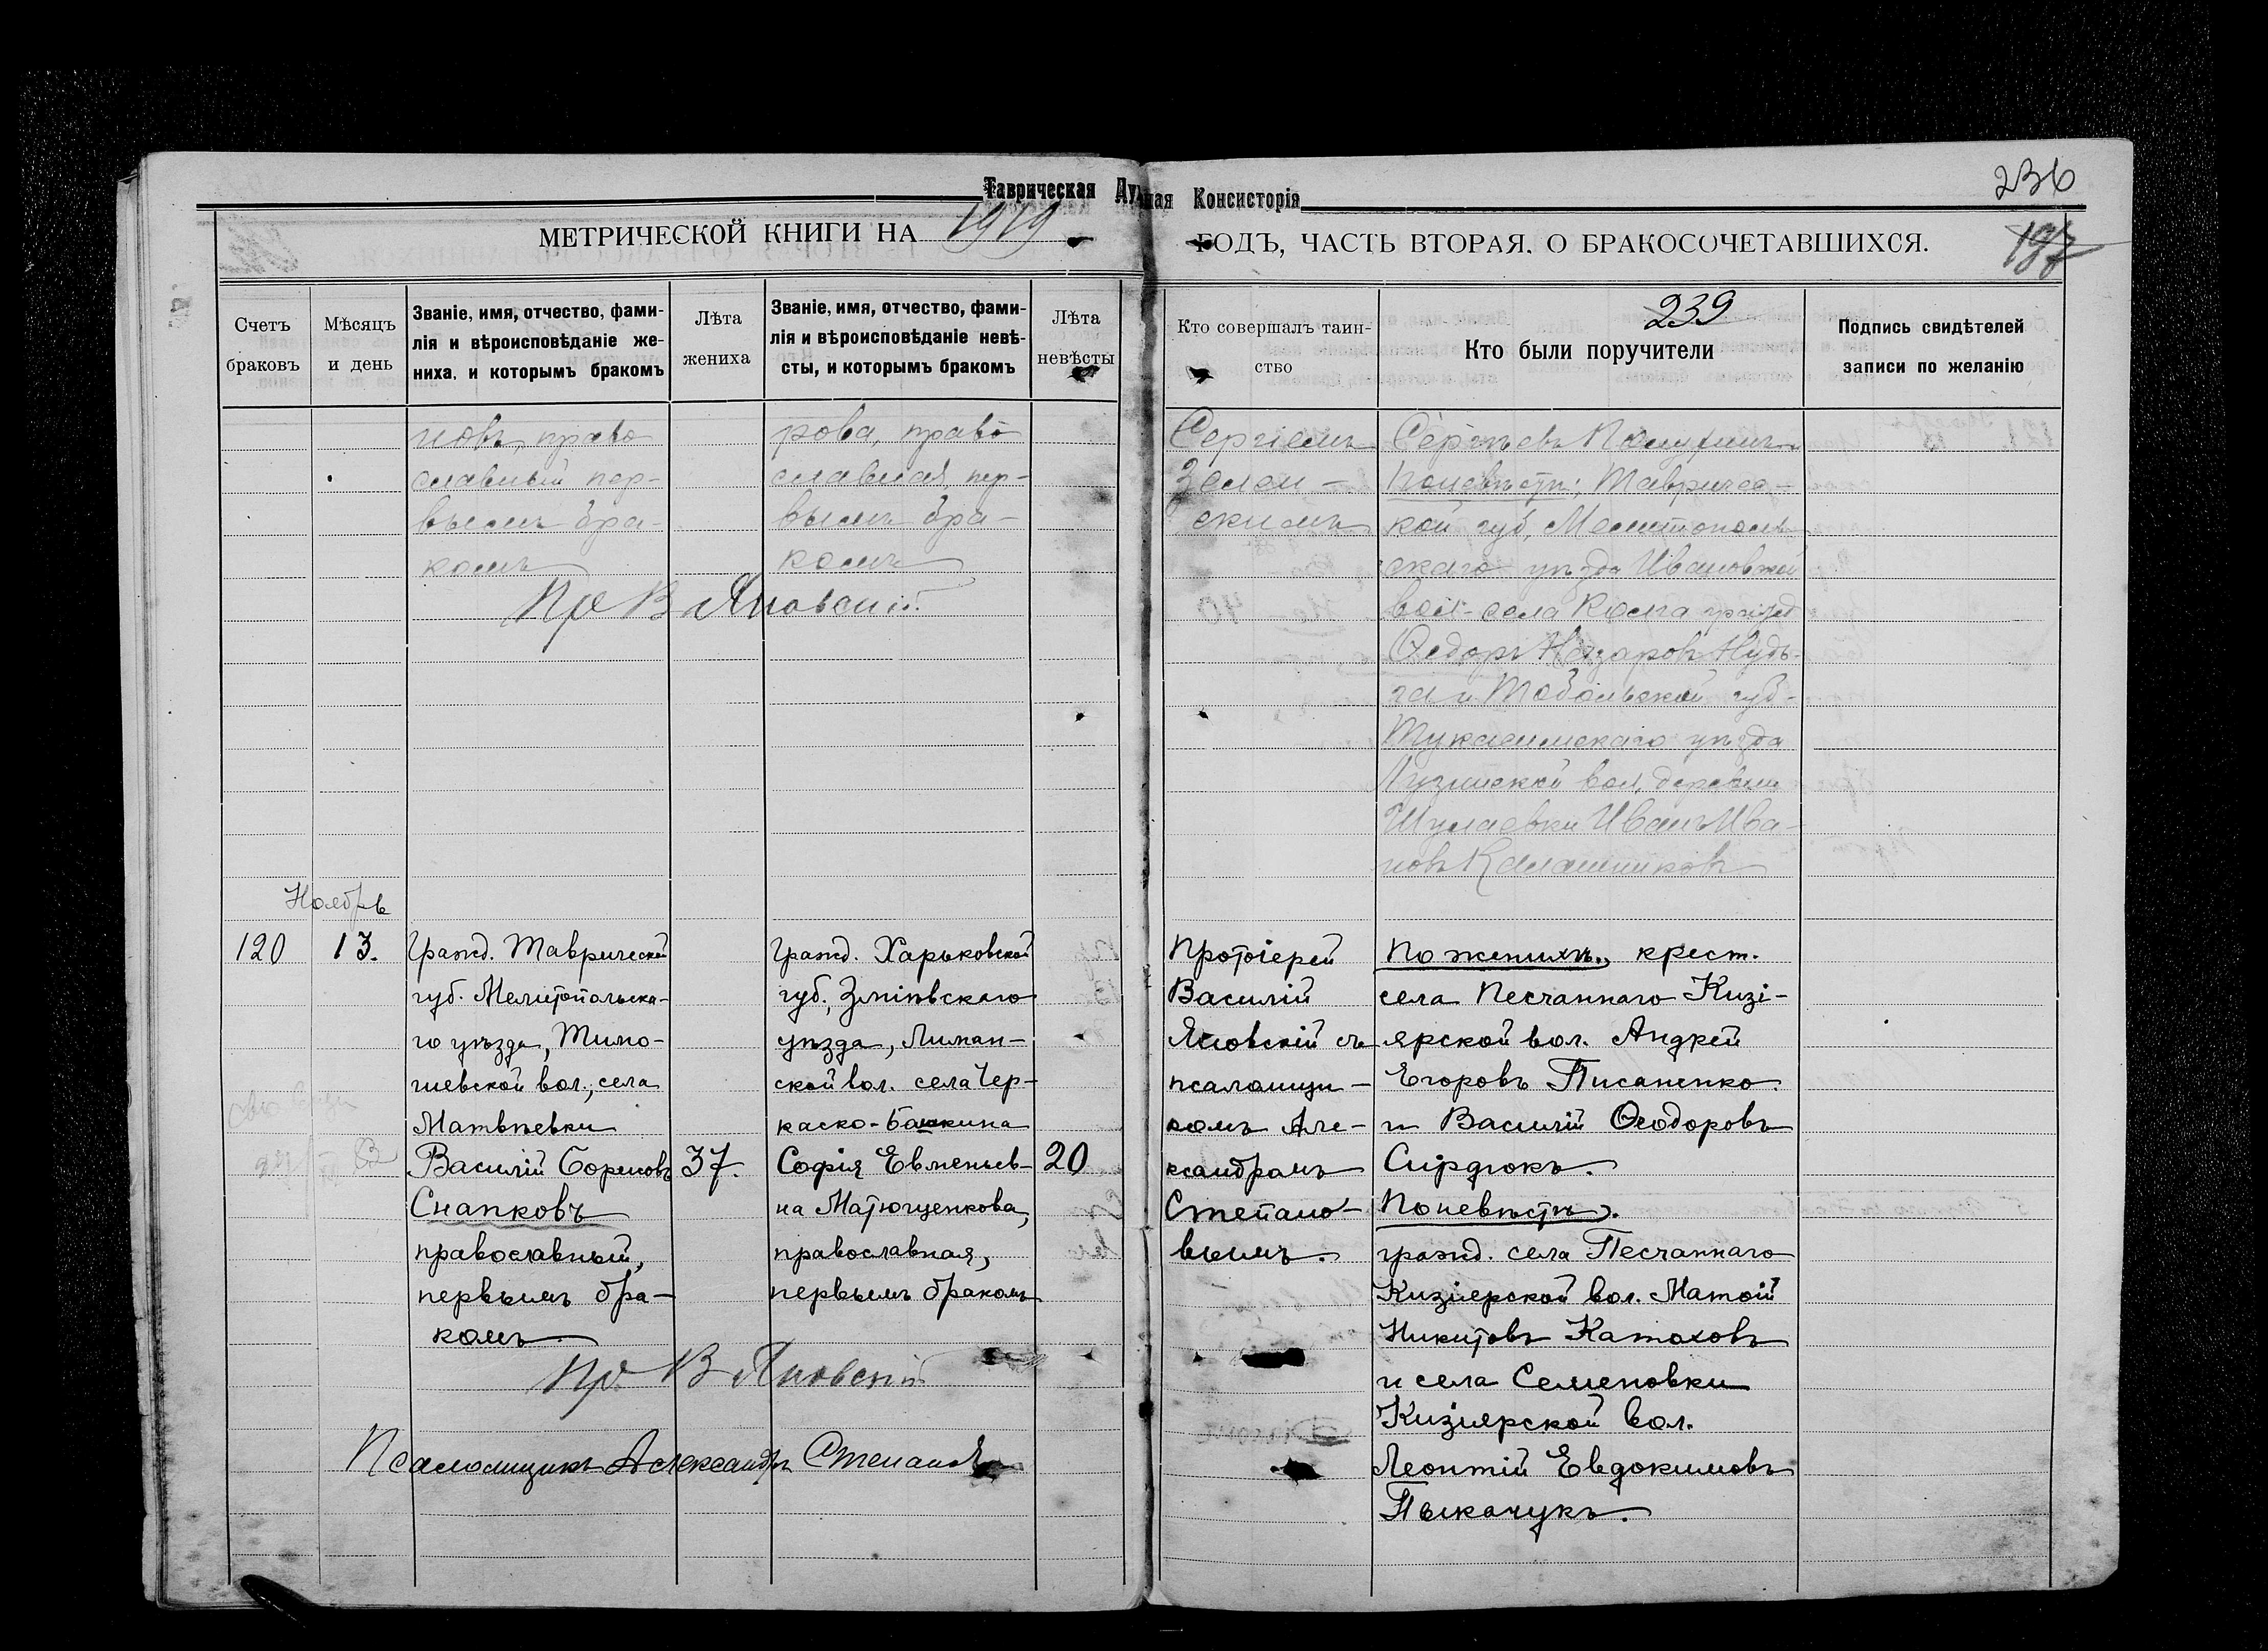 Таврическая Духовная Консисторія
236
МЕТРИЧЕСКОЙ КНИГИ НА 1919 ГОДЪ, ЧАСТЬ ВТОРАЯ. О БРАКОСОЧЕТАВШИХСЯ.
239
Счетъ
браковъ
Мѣсяцъ
и день
Званіе, имя, отчество, фами-
лія и вѣроисповѣданіе же-
ниха, и которымъ бракомъ
Лѣта
жениха
Званіе, имя, отчество, фами-
лія и вѣроисповѣданіе невѣ-
сты, и которымъ бракомъ
Лѣта
невѣсты
Кто совершалъ таин-
ство
Кто были поручители
Подпись свидѣтелей
записи по желанію
новъ, право
славный пер-
вымъ бра-
комъ
рова, право
славная, пер-
вымъ бра-
комъ
Сергіемъ
Зелен-
скимъ
Сергѣевъ
По невѣстѣ: Тавричес-
кой губ, Мелитополь
скаго уѣзда Ивановской
вол. села гражд
Ѳедоръ Назаровъ Нудь-
га и Тобольской губ-
Тукалинскаго уѣзда
Лузинской вол, деревни
Иванъ Ива-
новъ Калашниковъ
Пр В Яновскій
Ноябрь
120
13.
Гражд. Таврической
губ. Мелитопольска-
го уѣзда, Тимо-
шевской вол., села
Матвѣевки
Василій Борисовъ
Снапковъ
православный,
первымъ бра-
комъ
37.
Гражд. Харьковской
губ., Зміевскаго
уѣзда, Лиман-
ской вол. села Чер-
каско-Бишкина
Софія Евменьев-
на Матющенкова,
православная,
первымъ бракомъ
20
Протоіерей
Василій
Яновскій съ
псаломщи-
комъ Але-
ксандромъ
Степано-
вымъ.
По женихѣ., крест.
села Песчаннаго Кизі-
ярской вол. Андрей
Егоровъ Писаненко
и Василій Ѳеодоровъ
Сирдюкъ.
По невѣстѣ).
гражд. села Песчаннаго
Кизіярской вол. Матѳій
Никитовъ Катаховъ
и села Семеновки
Кизіярской вол.
Леонтій Евдокимовъ
Ткачукъ.
Пр. В Яновскій
Псаломщикъ Александръ Степановъ